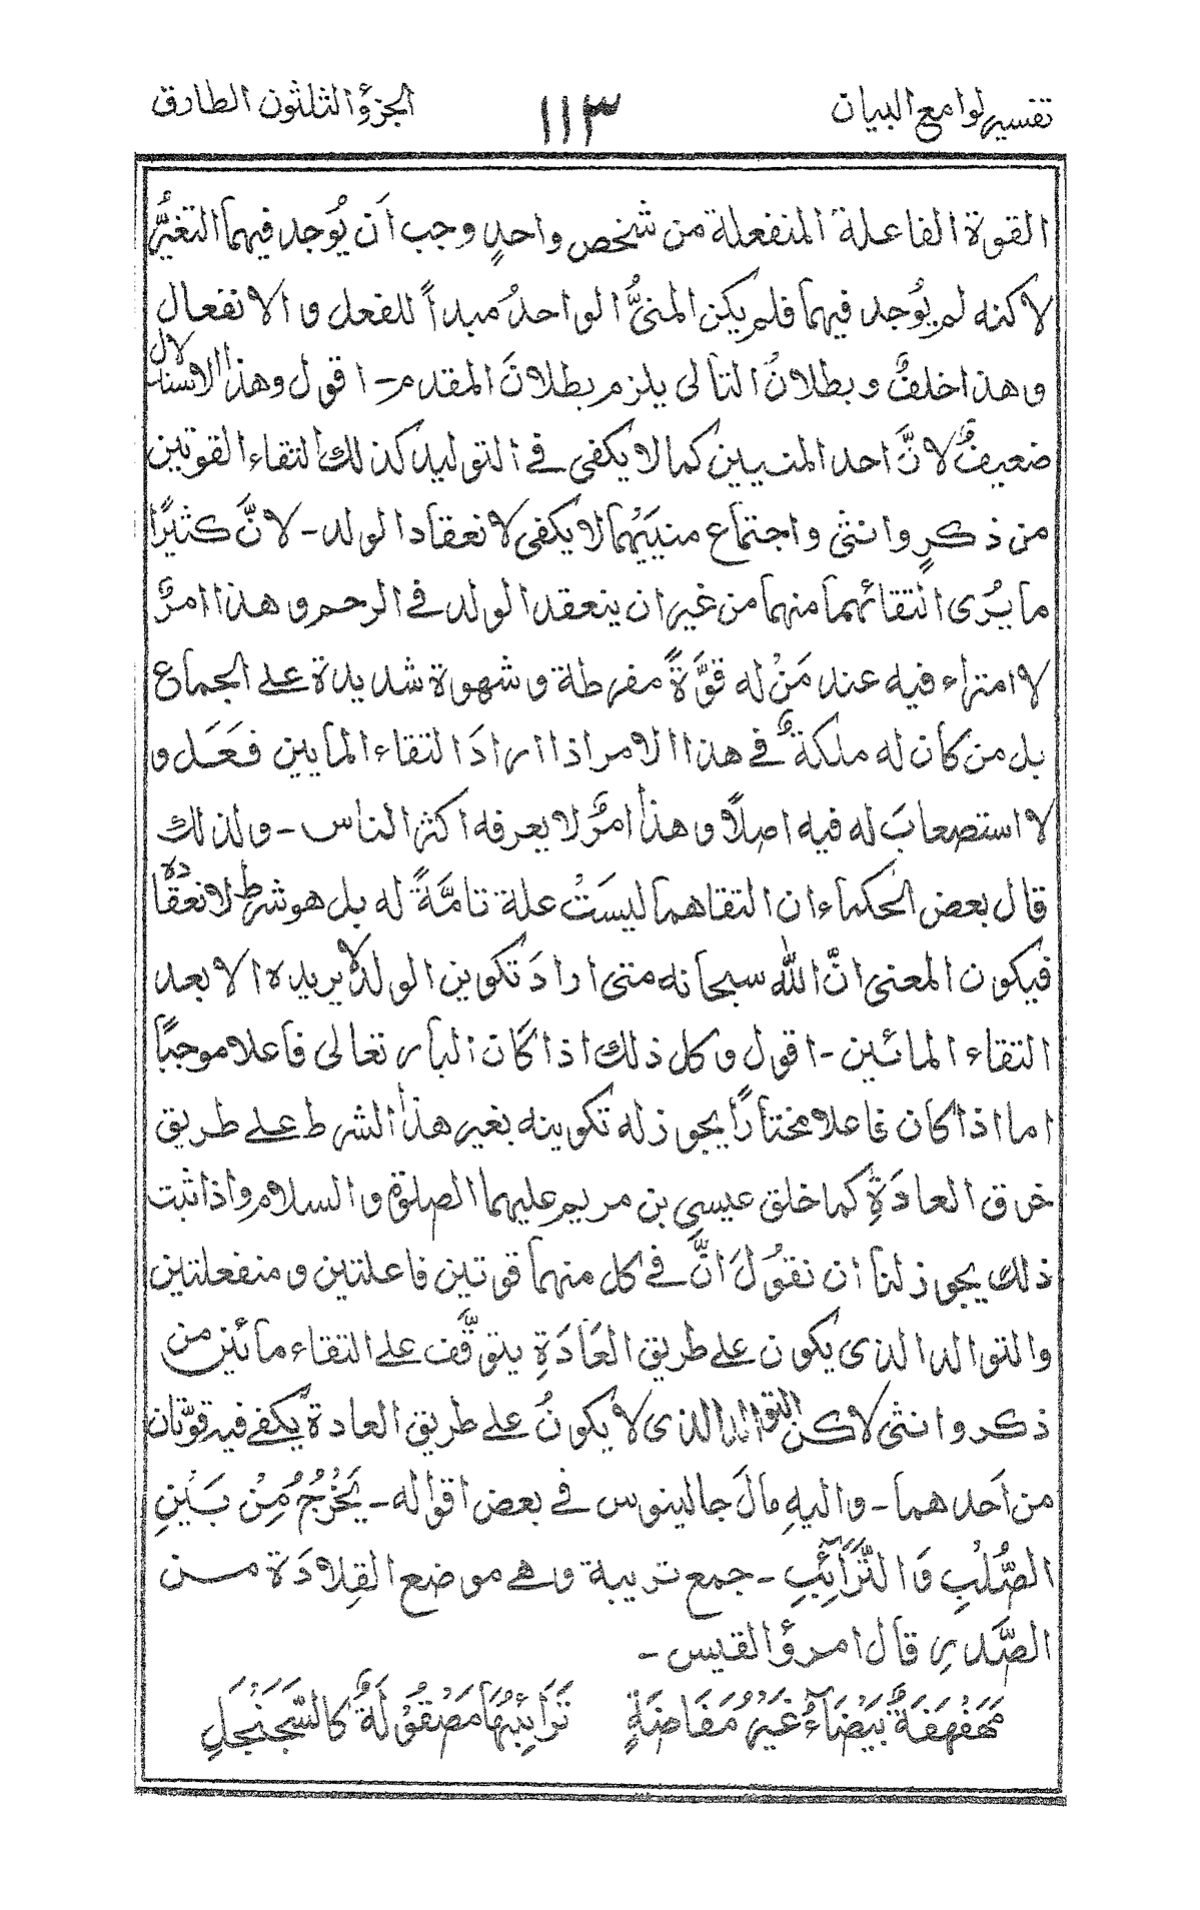 تفسير لوامع البيان ١١٣ الجزؤ الثلثون الطارق
القوة الفاعلة المنفعلة من شخص واحدٍ وجب اَن يُوجد فيهما التغيُّر
لاكنه لم يُوجد فيهما فلم يكن المنيُّ الواحدُ مَبدأً للفعل و الانفعال
وهذا خلفٌ و بطلانُ التالى يلزم بطلانَ المقدم - اقول وهذا الاستدلال
ضعيفٌ لانَّ احد المنيين كما لا يكفى فى التوليد كذلك التقاء القوتين
من ذكرٍ وانثى واجتماع منيَيْهما لا يكفى لانعقاد الولد - لانَّ كثيرًا
ما يُرى التقائهما منهما من غير ان ينعقد الولد فى الرحم و هذا امرٌ
لا امتراء فيه عند مَنْ له قوَّةً مفرطة و شهوة شديدة على الجماع
بل من كان له ملكةٌ فى هذا الامر اذا ارادَ التقاء المايين فَعَل و
لا استصعابَ له فيه اصلًا و هذا امرٌ لا يعرفه اكثر الناس - ولذلك
قال بعض الحكماء ان التقاهما ليسَتْ علة تامَّةً له بل هو شرط لانعقاده
فيكون المعنى انَّ الله سبحانه متى ارادَ تكوين الولد لا يريده الا بعد
التقاء المائين - اقول و كل ذلك اذا كان البار تعالى فاعلا موجبًا
اما اذا كان فاعلا مختارًا يجوز له تكوينه بغير هذا الشرط على طريق
خرق العادَةِ كما خلق عيسى بن مريم عليهما الصلوة والسلام واذا ثبت
ذلك يجوز لنا ان نقُولَ انَّ فى كل منهما قوتين فاعلتين و منفعلتين
والتوالد الذى يكون على طريق العَادَةِ يتوقَّف على التقاء مائين من
ذكر وانثى لاكن التوالد الذى لا يكونُ على طريق العادة يكفى فيه قوَّتان
من اَحدهما - واليهِ مالَ جالينوس فى بعض اقواله - يَخْرُجُ مِنْ بَيْنِ
الصُّلْبِ وَالتَّرَآئِبِ - جمع تريبة وهى موضع القِلادَة من
الصَّدرِ قال امرؤ القيس -
مَهَفْهَفَةٌ بَيْضَآءُ غَيْرُ مُفَاضَةٍ تَرَائِبُهَا مَصْقُولَةٌ كَالسَّجَنْجَلِ